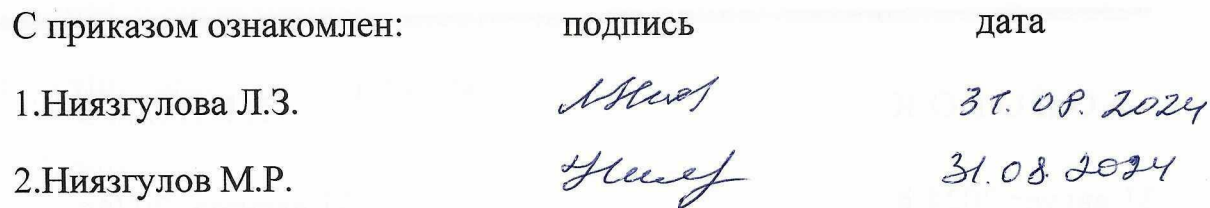 С приказом ознакомлен: подпись дата
1.Ниязгулова Л.З. 31.08.2024
2.Ниязгулов М.Р. 31.08.2024